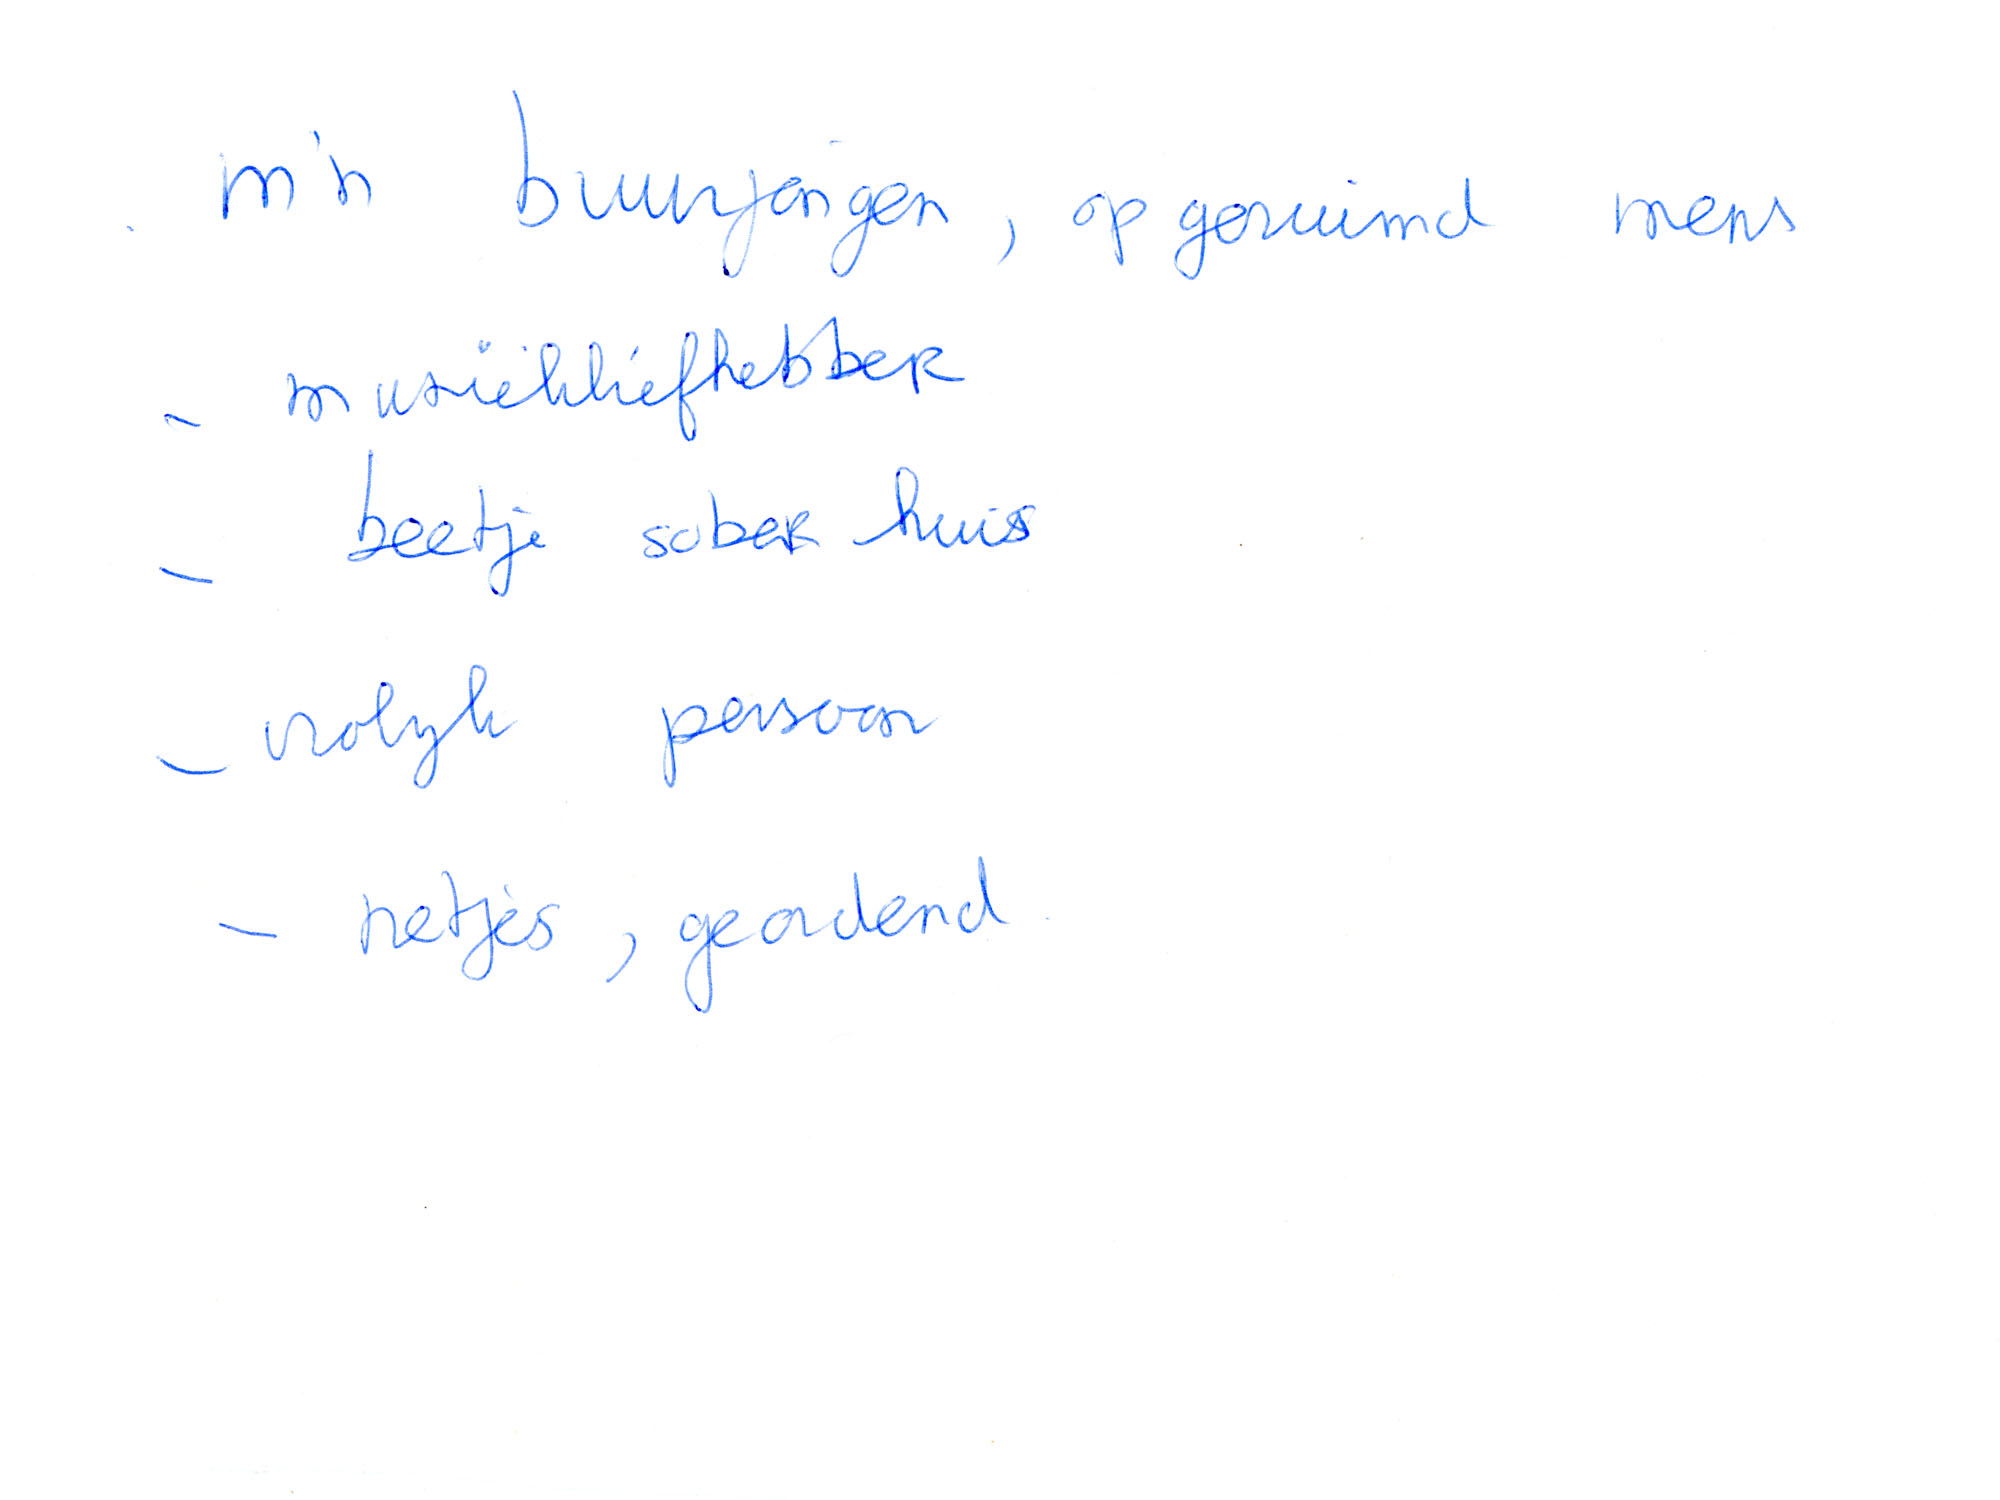 m'n buurjongen, opgeruimd mens
- muziekliefhebber
- beetje sober huis
- vrolyk persoon
- netjes, geordend